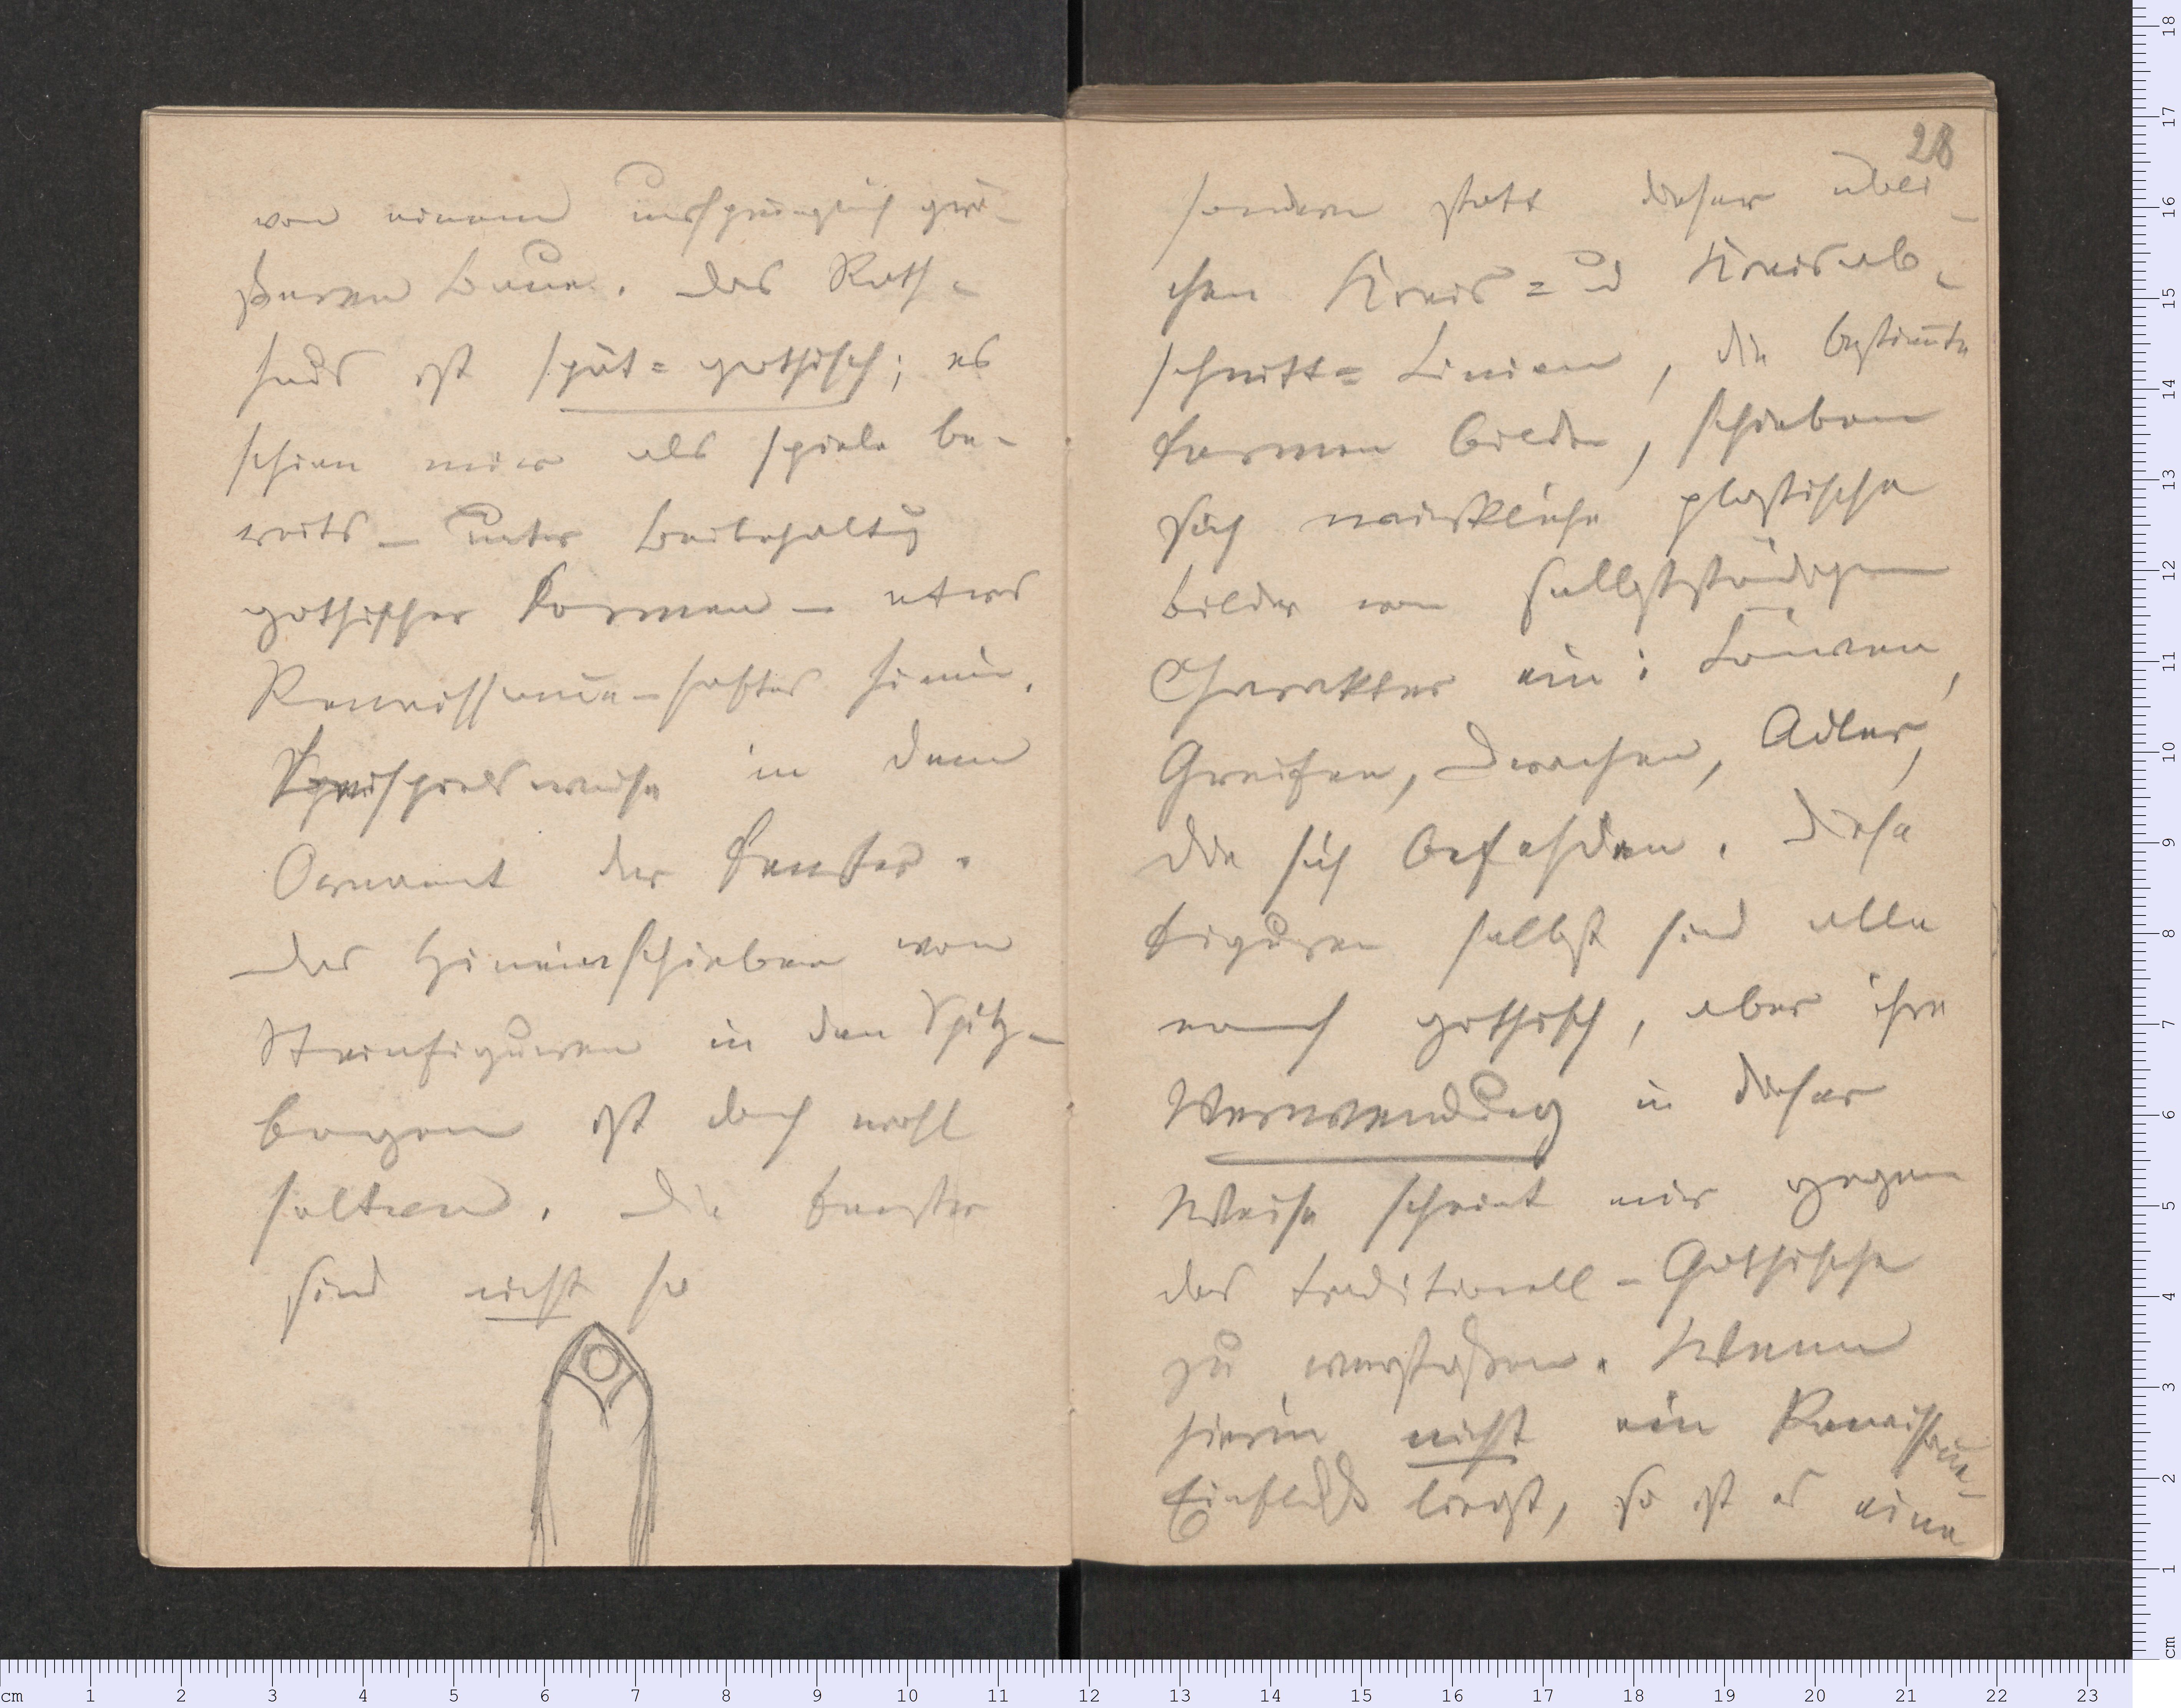 von einem ursprünglich grö-
ßeren Baue. Das Rath-
haus ist spät= gothisch; es
schien mir als spiele be-
reits – unter Beibehaltung
gothischer Formen – etwas
Renaissance-haftes hinein.
beispielsweise in dem
Ornament der Fenster.
Das Hineinschieben von
Steinfiguren in den Spitz-
bogen ist doch wohl
selten. Die Fenster
sind nicht so
28
sondern statt dieser übli-
chen Kreis= und Kreisab-
schnitt= Linien, die bestim̅te
Formen bilden, schieben
sich wirkliche plastische
Bilder von selbstständigem
Charakter ein: Löwen,
Greifen, Drachen, Adler,
die sich befehden. Diese
Figuren selbst sind alle
noch gothisch, aber ihre
Verwendung in dieser
Weise scheint mir gegen
das traditionell-Gothische
zu verstoßen. Wenn
hierin nicht ein Renaissance-
Einfluß liegt, so ist es eine